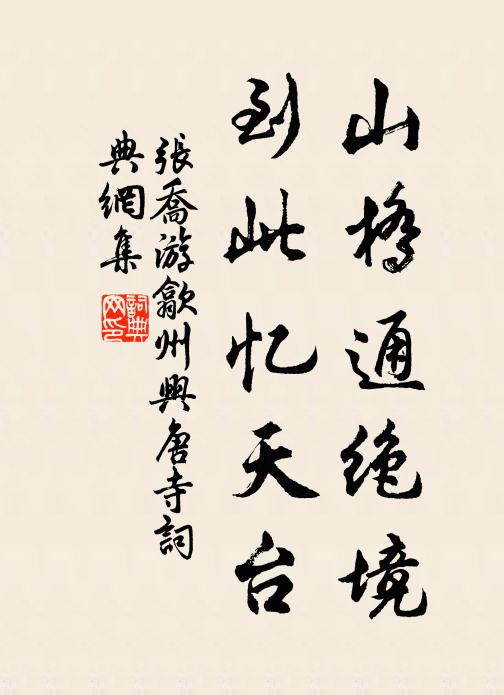 山橋通绝境
到此忆天台
張喬游歙州興唐寺詞
典網集
詞典
网印